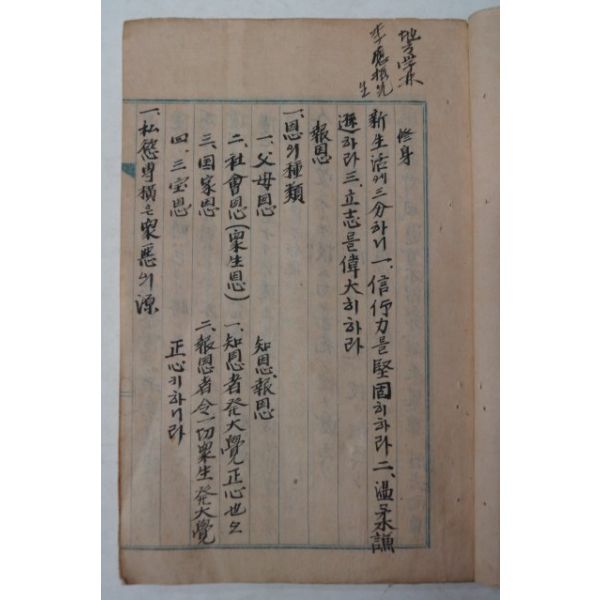 地方学林
李應根先生
修身
新生活에三分하니一、信行力을堅固히하라二、温柔謙
遜하라三、立志를偉大히하라
報恩
一、恩의種類
一、父母恩 知恩、報恩
二、社會恩(衆生恩) 一、知恩者発大覺正心也요
三、国家恩 二、報恩者令一切衆生発大覺
四、三宝恩 正心키하니라
一、私慾專橫은衆惡의源